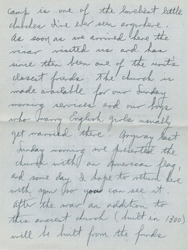 camp is one of the loveliest little
churches I've ever seen anywhere.
As soon as we arrived here the
vicar visited us and has
since then been one of the units
closest friends. The church is
made available for our Sunday
morning services and our boys
who marry English girls usually
get married there. Anyway last
Sunday morning we presented the
church with an American flag,
and some day I hope to return here
with you so you can see it.
After the war an addition to
this ancient church (built in 1300)
will be built from the funds